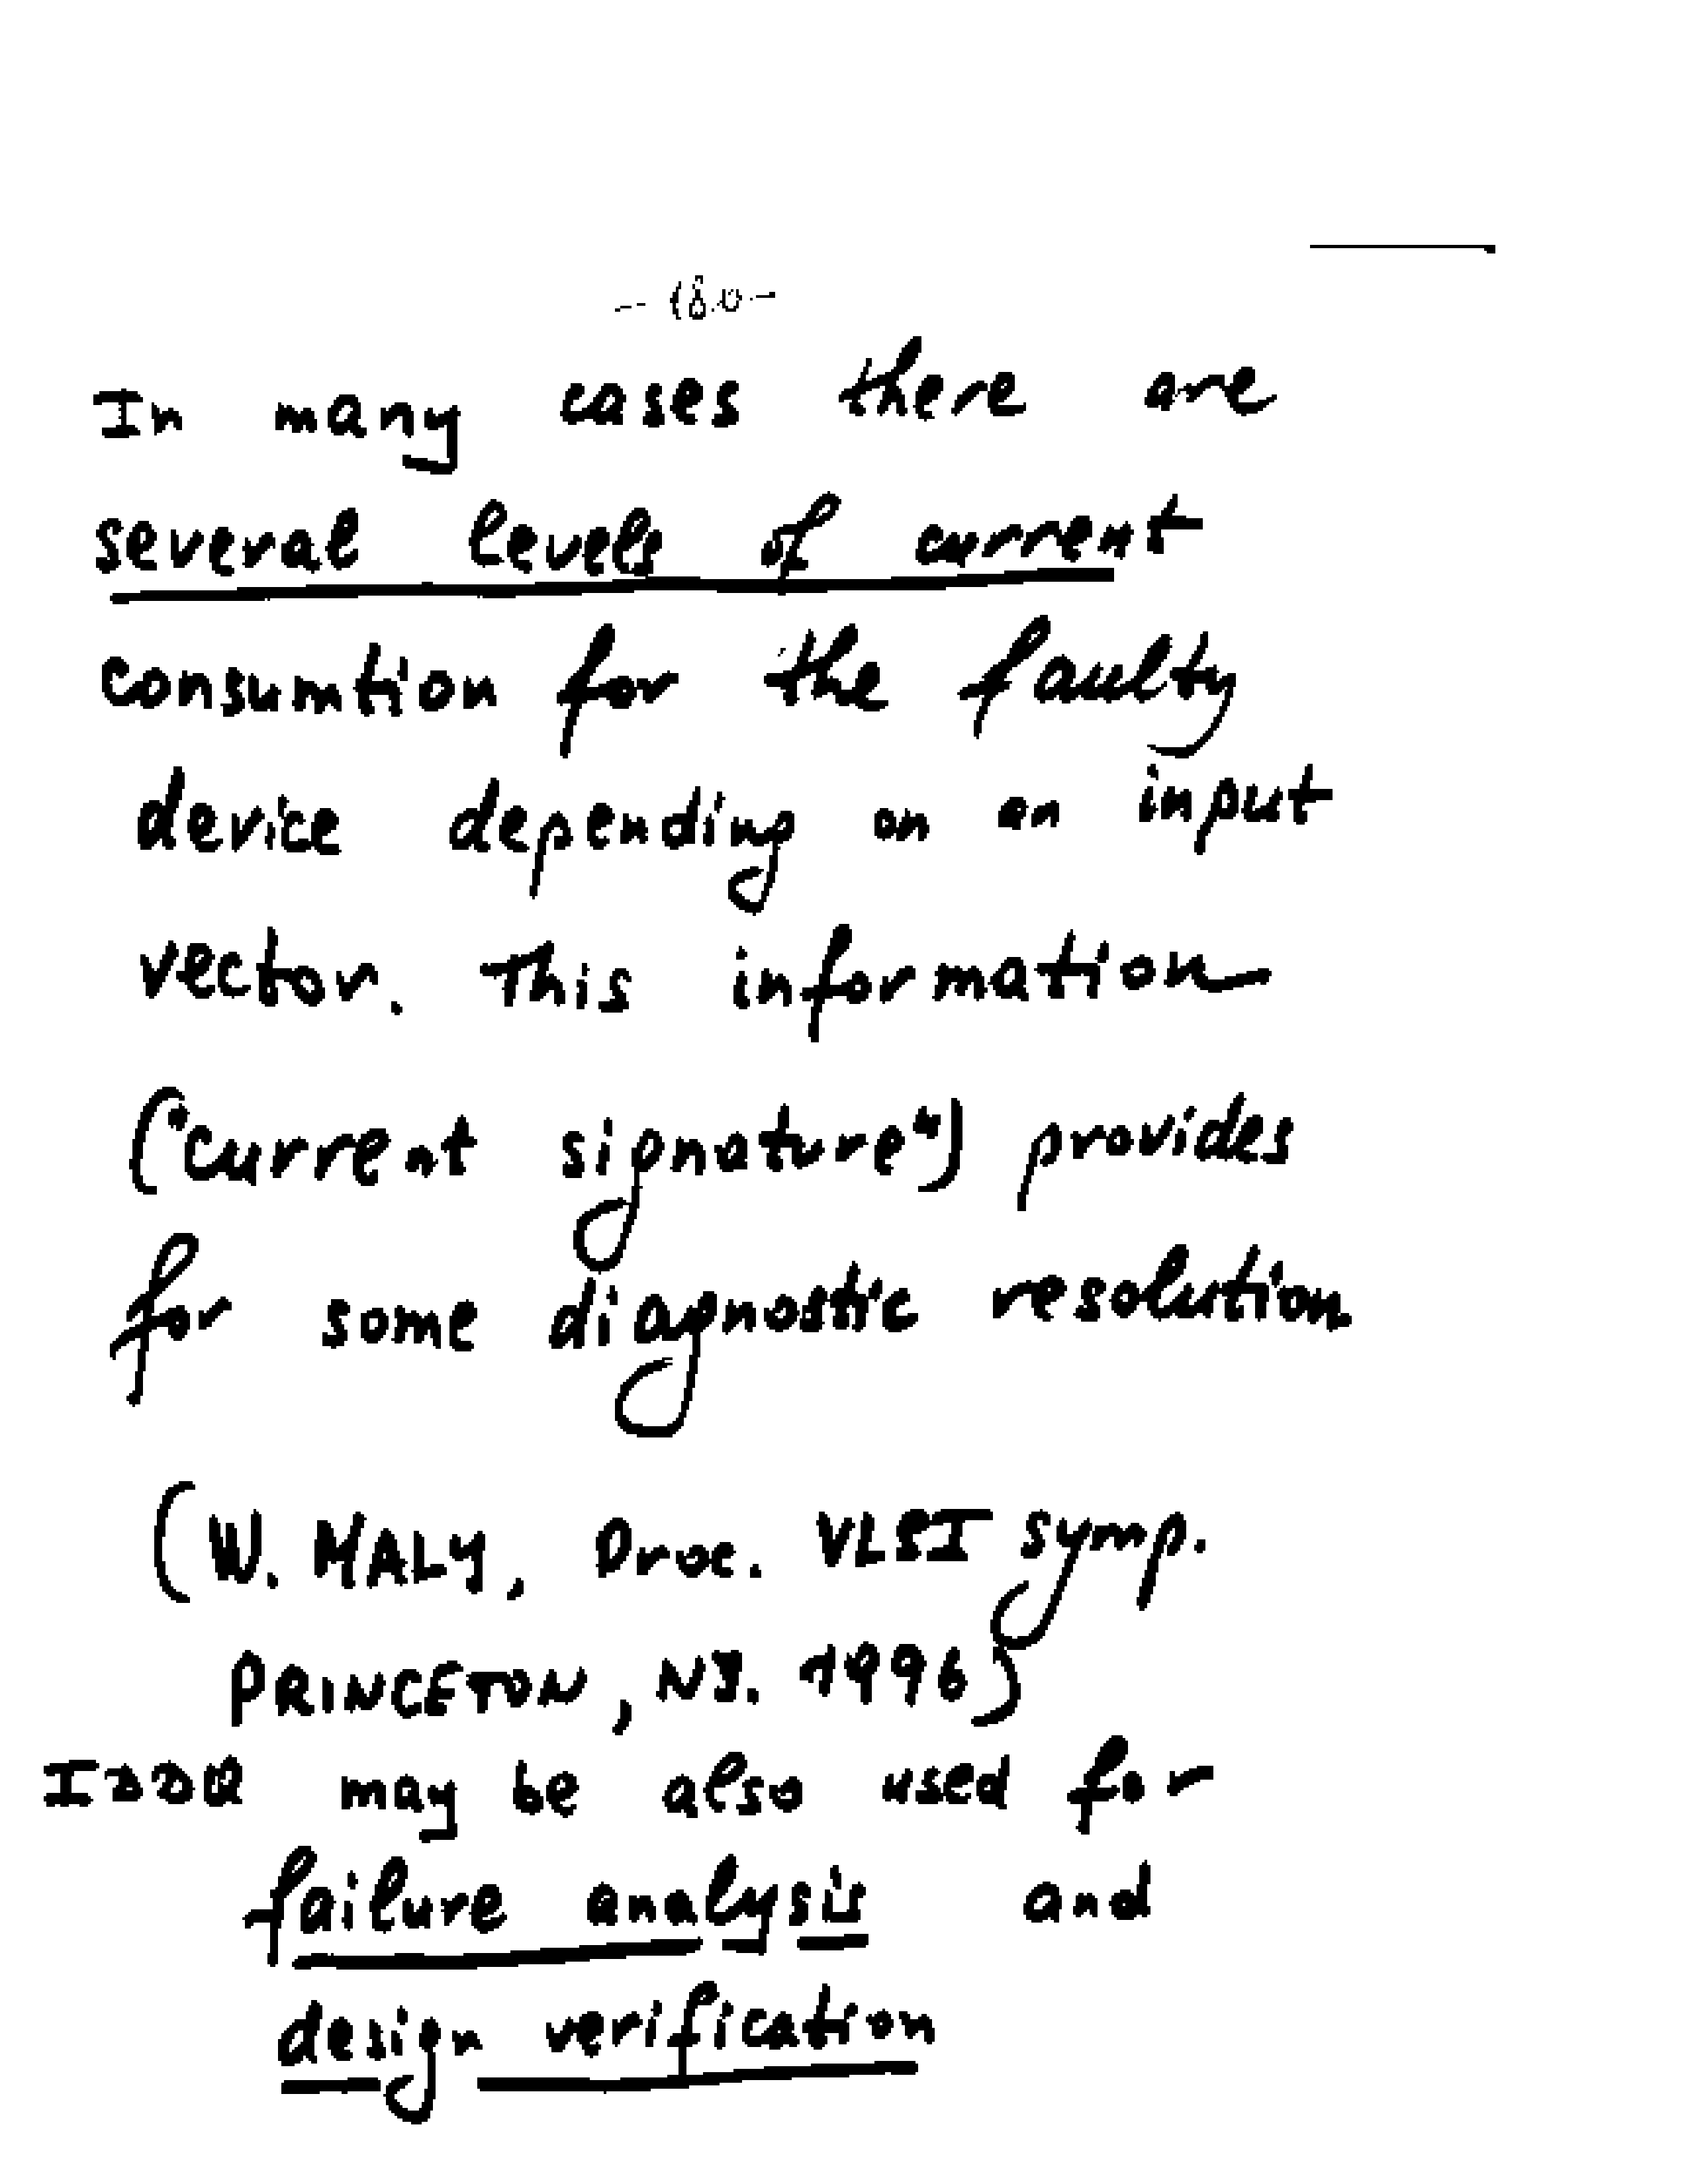 - 180 -
In many cases there are
several levels of current
consumtion for the faulty
device depending on an input
vector. This information
("current signature") provides
for some diagnostic resolution
(W. MALY, Proc. VLSI symp.
PRINCETON, NJ. 1996)
IDDQ may be also used for
failure analysis and
design verification